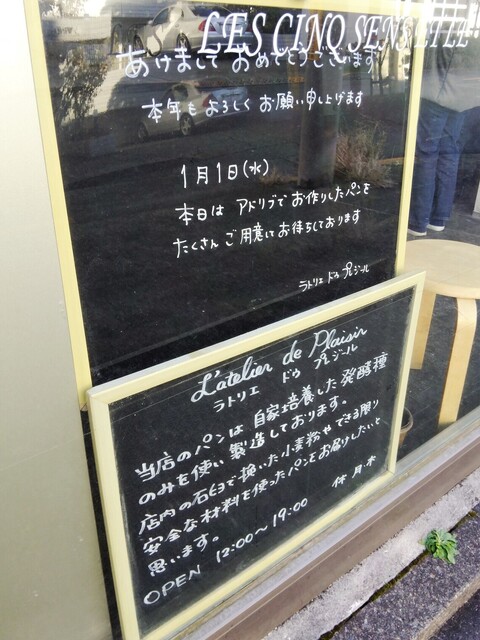 LES CINQ SENS ET LE
あけまして おめでとうございます
本年も よろしく お願い申し上げます
1月1日(水)
本日は アドリブで お作りしたパンを
たくさん ご用意してお待ちしております
ラトリエ ドゥ プレジール
L'atelier de Plaisir
ラトリエ ドゥ プレジール
当店のパンは 自家培養した発酵種
のみを使い 製造しております。
店内の石臼で挽いた小麦粉や できる限り
安全な材料を使ったパンをお届けしたいと
思います。
休 月.木
OPEN 12:00〜19:00